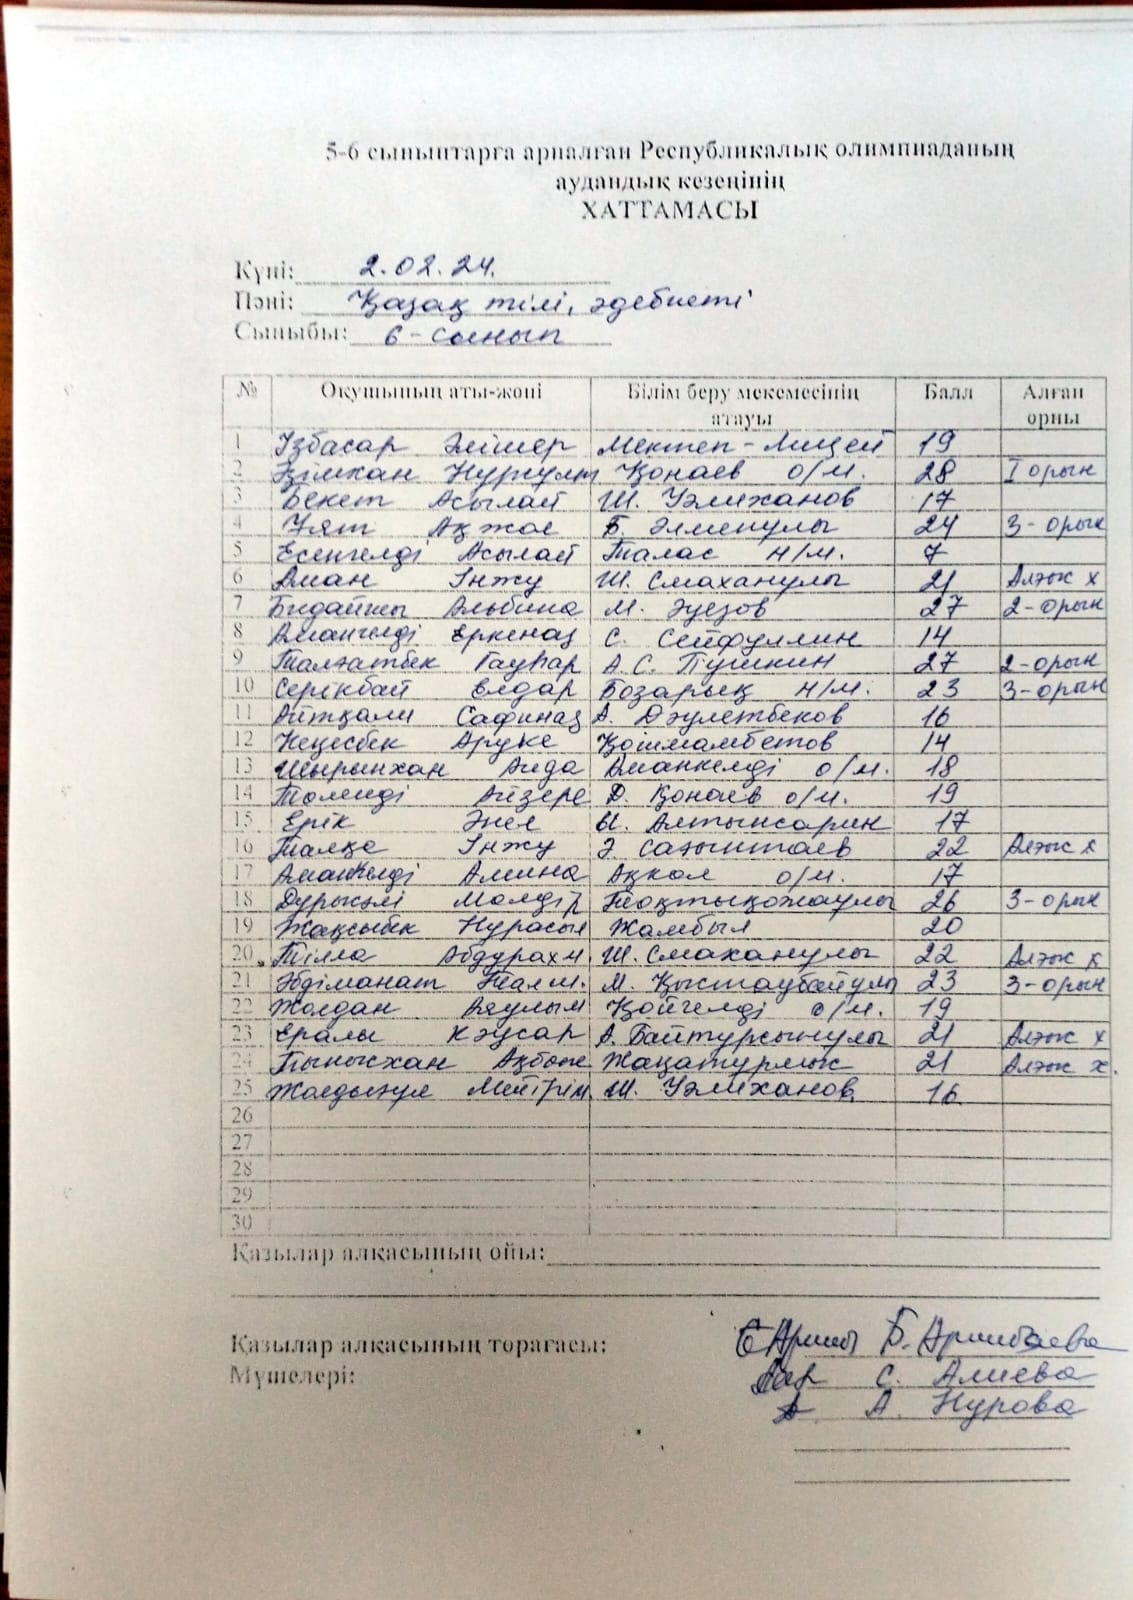 5-6 сыныптарға арналған Республикалық олимпиаданың
аудандық кезеңінің
ХАТТАМАСЫ
Күні: 2.02.24.
Пәні: Қазақ тілі, әдебиеті
Сыныбы: 6-сынып
№ Оқушының аты-жөні Білім беру мекемесінің атауы Балл Алған орны
1 Ізбасар Әлішер Мектеп-Лицей 19
2 Әзімхан Нұргүлім Қонаев о/м. 28 I орын
3 Бекет Асылай Ш. Уәлиханов 17
4 Ұят Ақжол Б Әлменұлы 24 3-орын
5 Есенгелді Асылай Талас н/м. 7
6 Аман Інжу Ш. Смаханұлы 21 Алғыс х
7 Бидайшы Альбина М. Әуезов 27 2-орын
8 Амангелді Еркеназ С. Сейфуллин 14
9 Талғатбек Гауһар А.С. Пушкин 27 2-орын
10 Серікбай Елдар Бозарық н/м. 23 3-орын
11 Айтқали Сафиназ А. Дәулетбеков 16
12 Кеңесбек Аруке Қошмамбетов 14
13 Шырынхан Аида Аманкелді о/м. 18
14 Төленді Айзере Д. Қонаев о/м. 19
15 Ерік Әнел Ы. Алтынсарин 17
16 Талқа Інжу Ә Сағынтаев 22 Алғыс х
17 Аманкелді Амина Ақкөл о/м. 17
18 Дүрыәлі Мөлдір Тоқтықожаұлы 26 3-орын
19 Жақсыбек Нұрасыл Жамбыл 20
20 Тілла Абдурахм Ш. Смаханұлы 22 Алғыс х
21 Әбдіманат Талм. М. Қыстаубайұлы 23 3-орын
22 Жолдан Аяулым Қойгелді о/м. 19
23 Ералы Кәусар А. Байтұрсынұлы 21 Алғыс х
24 Тынысхан Ақбөпе Жаңатұрмыс 21 Алғыс х.
25 Жолдығұл Мейірім Ш. Уәлиханов 16
26
27
28
29
30
Қазылар алқасының ойы:
Қазылар алқасының төрағасы: Б. Арынбаева
Мүшелері: С. Алиева
А. Нурова